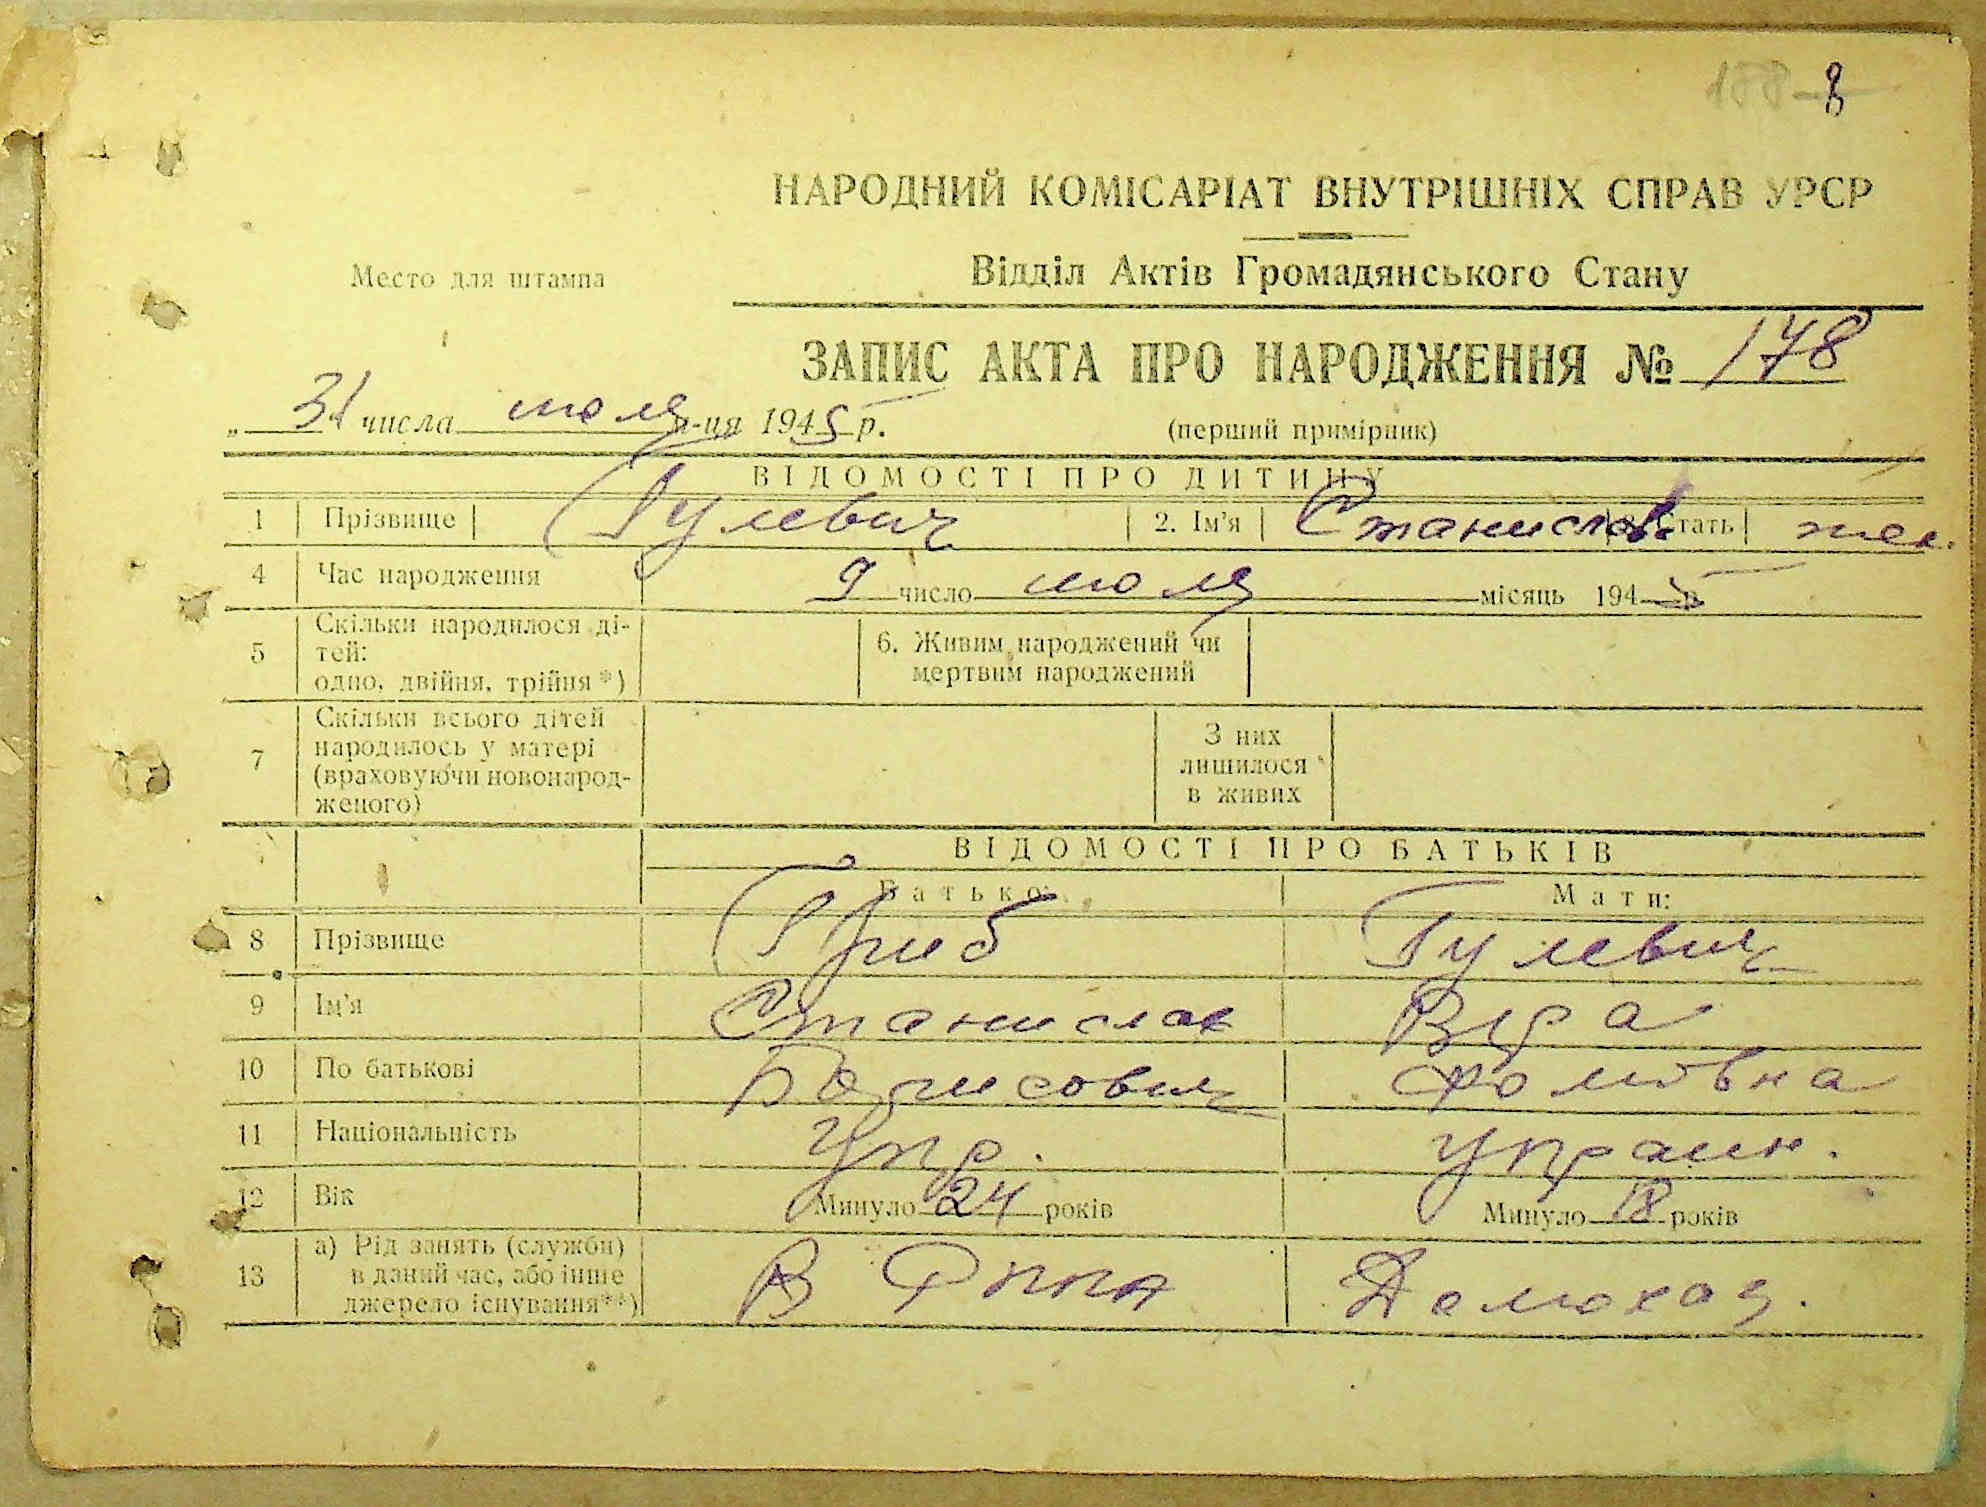 8
НАРОДНИЙ КОМІСАРІАТ ВНУТРІШНІХ СПРАВ УРСР
Место для штампа
Відділ Актів Громадянського Стану
ЗАПИС АКТА ПРО НАРОДЖЕННЯ № 178
„ 31 числа июля м-ця 1945 р.
(перший примірник)
ВІДОМОСТІ ПРО ДИТИНУ
1 Прізвище Гулевич 2. Ім'я Станислав 3. Стать жен.
4 Час народження 9 число июля місяць 1945 р.
5 Скільки народилося ді-
тей:
одно, двійня, трійня *)
6. Живим народжений чи
мертвим народжений
7 Скільки всього дітей
народилось у матері
(враховуючи новонарод-
женого)
З них
лишилося
в живих
ВІДОМОСТІ ПРО БАТЬКІВ
Батько: Мати:
8 Прізвище Гриб Гулевич
9 Ім'я Станислав Віра
10 По батькові Борисович Фомовна
11 Національність Укр. Украин.
12 Вік Минуло 24 років Минуло 18 років
13 а) Рід занять (служби)
в даний час, або інше
джерело існування**)
В РККА Домохоз.